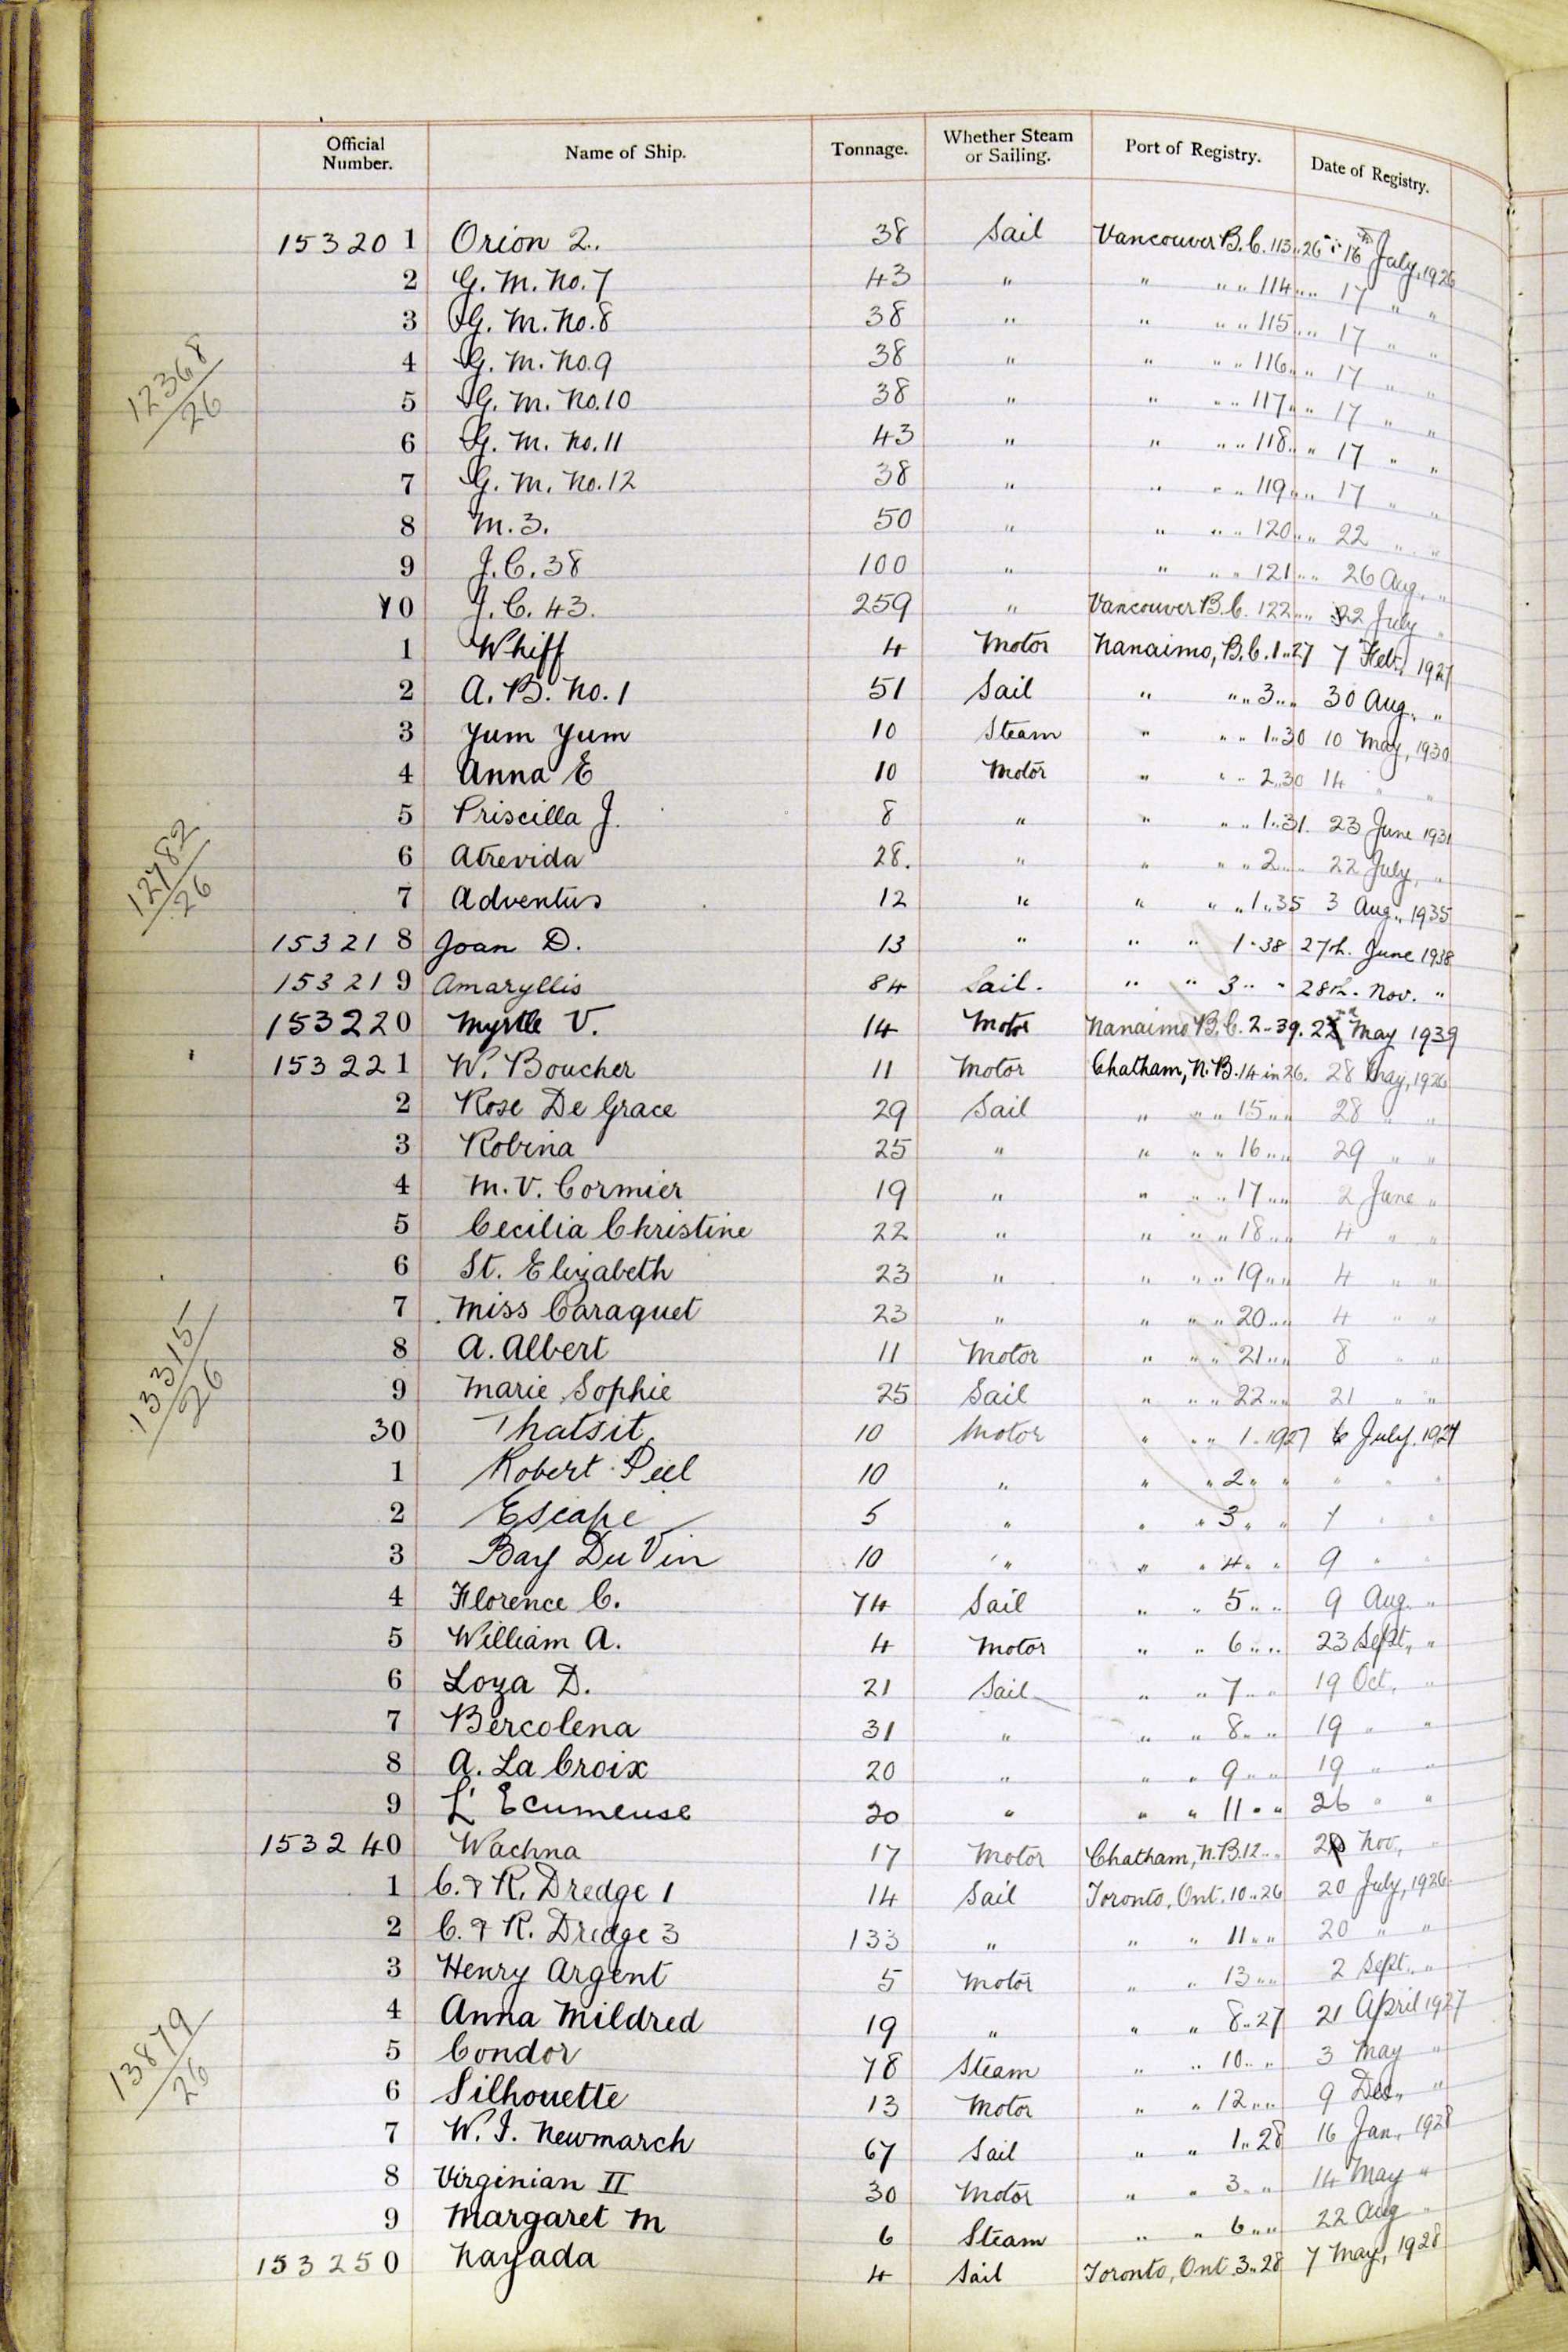 Official Number. Name of Ship. Tonnage. Whether Steam or Sailing. Port of Registry. Date of Registry.
153201 Orion 2. 38 Sail Vancouver B.C. 113 " 26 " 16th July, 1926
2 G. M. No. 7 43 " " " " 114 " " 17 " "
3 G. M. No. 8 38 " " " " 115 " " 17 " "
12368/26
4 G. M. No. 9 38 " " " " 116 " " 17 " "
5 G. M. No. 10 38 " " " " 117 " " 17 " "
6 G. M. No. 11 43 " " " " 118 " " 17 " "
7 G. M. No. 12 38 " " " " 119 " " 17 " "
8 M. 3. 50 " " " " 120 " " 22 " "
9 J. C. 38 100 " " " " 121 " " 26 Aug, "
10 J. C. 43. 259 " Vancouver B.C. 122 " " 22 July "
1 Whiff 4 Motor Nanaimo, B.C. 1 " 27 7 Feb, 1927
2 A. B. No. 1 51 Sail " " " 3 " " 30 Aug, "
3 Yum Yum 10 Steam " " " 1 " 30 10 May, 1930
4 Anna E 10 Motor " " " 2 " 30 14 " "
5 Priscilla J. 8 " " " " 1 " 31. 23 June 1931
12782/26
6 Atrevida 28. " " " " 2 " " 22 July, "
7 Adventus 12 " " " " 1 " 35 3 Aug., 1935
153218 Joan D. 13 " " " 1 " 38 27th. June 1938
153219 Amaryllis 84 Sail. " " 3 " " 28th. Nov. "
153220 Myrtle V. 14 Motor Nanaimo B.C. 2 " 39. 2 May 1939
153221 W. Boucher 11 Motor Chatham, N.B. 14 in 26. 28 May, 1926
2 Rose De Grace 29 Sail " " " 15 " " 28 " "
3 Robina 25 " " " " 16 " " 29 " "
4 M. V. Cormier 19 " " " " 17 " " 2 June "
5 Cecilia Christine 22 " " " " 18 " " 4 " "
6 St. Elizabeth 23 " " " " 19 " " 4 " "
7 Miss Caraquet 23 " " " " 20 " " 4 " "
13315/26
8 A. Albert 11 Motor " " " 21 " " 8 " "
9 Marie Sophie 25 Sail " " " 22 " " 21 " "
30 Thatsit 10 Motor " " " 1 " 1927 6 July. 1927
1 Robert Peel 10 " " " 2 " " " " "
2 Escape 5 " " " 3 " " 7 " "
3 Bay Du Vin 10 " " " 4 " " 9 " "
4 Florence C. 74 Sail " " 5 " " 9 Aug. "
5 William A. 4 Motor " " 6 " " 23 Sept, "
6 Loza D. 21 Sail " " 7 " " 19 Oct, "
7 Bercolena 31 " " " 8 " " 19 " "
8 A. La Croix 20 " " " 9 " " 19 " "
9 L' Ecumeuse 20 " " " 11 " " 26 " "
153240 Wachna 17 Motor Chatham, N.B. 12 " " Nov, "
1 C. & R. Dredge 1 14 Sail Toronto, Ont. 10 " 26 20 July, 1926
2 C. & R. Dredge 3 133 " " " 11 " " 20 " "
3 Henry Argent 5 Motor " " 13 " " 2 Sept. "
4 Anna Mildred 19 " " " 8 " 27 21 April 1927
13879/26
5 Condor 78 Steam " " 10 " " 3 May "
6 Silhouette 13 Motor " " 12 " " 9 Dec, "
7 W. J. Newmarch 67 Sail " " 1 " 28 16 Jan, 1928
8 Virginian II 30 Motor " " 3 " " 14 May "
9 Margaret M 6 Steam " " 6 " " 22 Aug "
153250 Nayada 4 Sail Toronto, Ont. 3 " 28 7 May, 1928